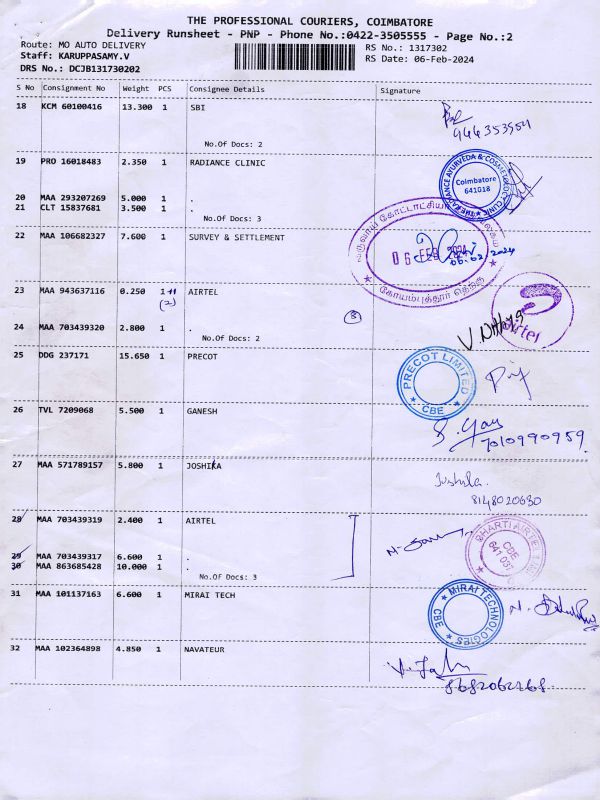 THE PROFESSIONAL COURIERS, COIMBATORE
Delivery Runsheet - PNP - Phone No.:0422-3505555 - Page No.:2
Route: MO AUTO DELIVERY
RS No.: 1317302
Staff: KARUPPASAMY.V
RS Date: 06-Feb-2024
DRS No.: DCJB131730202
S No Consignment No Weight PCS Consignee Details Signature
18 KCM 60100416 13.300 1 SBI
No.Of Docs: 2
19 PRO 16018483 2.350 1 RADIANCE CLINIC
Coimbatore
641018
20 MAA 293207269 5.000 1 .
21 CLT 15837681 3.500 1 .
No.Of Docs: 3
22 MAA 106682327 7.600 1 SURVEY & SETTLEMENT
06 FEB 2024
06.02.2024
கோயம்புத்தூர் தெற்கு
23 MAA 943637116 0.250 1+1 AIRTEL
(2)
(3)
airtel
24 MAA 703439320 2.800 1 .
No.Of Docs: 2
25 DDG 237171 15.650 1 PRECOT
PRECOT LIMITED
CBE
26 TVL 7209068 5.500 1 GANESH
7010990959.
27 MAA 571789157 5.800 1 JOSHIKA
8148020630
28 MAA 703439319 2.400 1 AIRTEL
BHARTI AIRTEL LIMITED
CBE
641 037
29 MAA 703439317 6.600 1 .
30 MAA 863685428 10.000 1 .
No.Of Docs: 3
31 MAA 101137163 6.600 1 MIRAI TECH
MIRAI TECHNOLOGIES
CBE
32 MAA 102364898 4.850 1 NAVATEUR